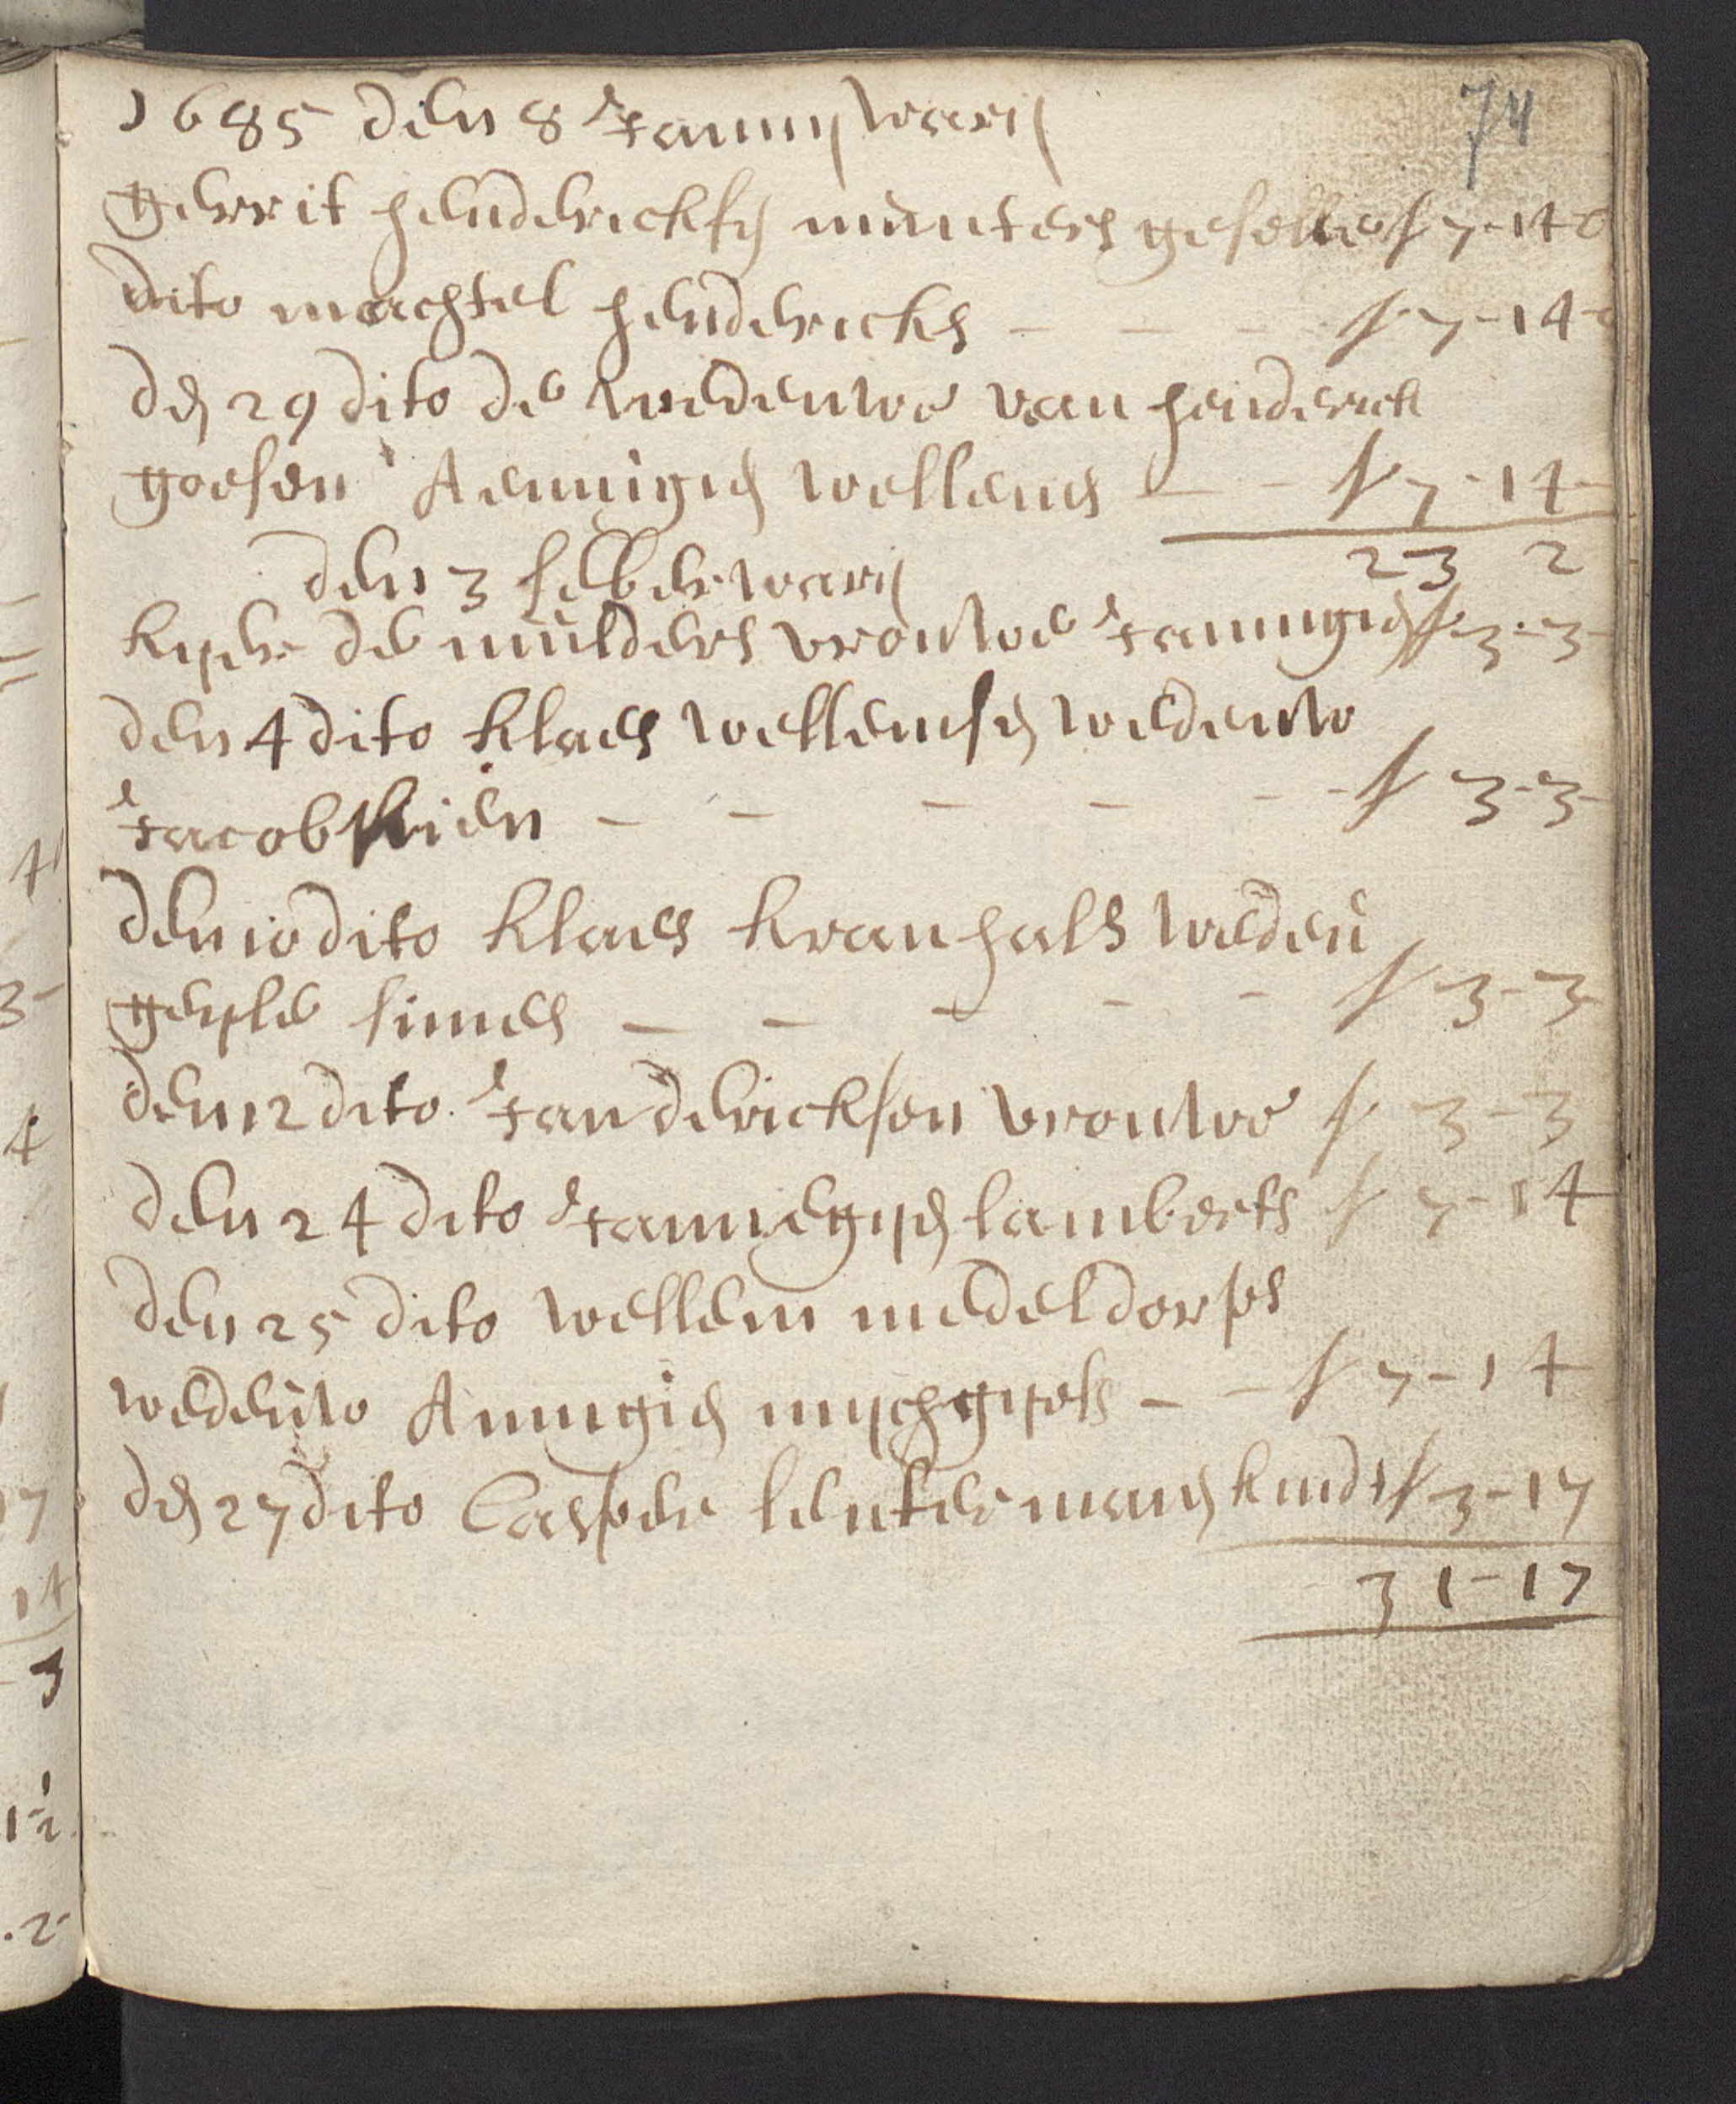 74
1685 den 8 Jannywarij
gerrit henderickse munters geselle f 7-14-0
dito machtel hendericks - - - f 7-14-0
de 29 dito de wedeuwe van henderick
goesen Aennigie wellems - - f 7-14-
23 2
den 3 feberwarij
kyper de mulders vrouwe Jannigie f 3-3-
den 4 dito klaes wellemse wedeuw
Jacobmien - - - - - f 3-3-
den 10 dito klaes kranhals wedeu
geysle simes - - - - - f 3-3-
den 12 dito Jan derickson vrouwe f 3-3
den 24 dito Jannegye lamberts f 7-14
den 25 dito wellem medeldorps
wedeuw Annigie mychgyels - - f 7-14
de 27 dito Casper lenterman kindt f 3-17
31-17